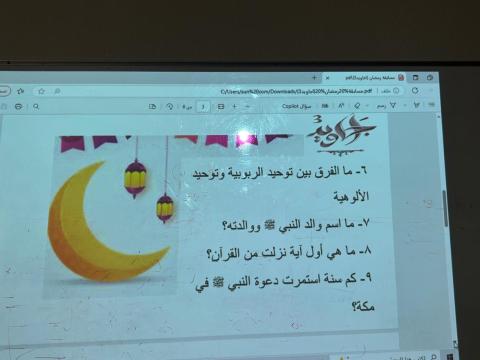 مسابقة رمضان (جاويد3).pdf
ملف
C:/Users/sam%20zoom/Downloads/مسابقة%20رمضان%20(جاويد3).pdf
رسم
سؤال Copilot
3
من 6
3
٦- ما الفرق بين توحيد الربوبية وتوحيد
الألوهية
٧- ما اسم والد النبي ﷺ ووالدته؟
٨- ما هي أول آية نزلت من القرآن؟
٩- كم سنة استمرت دعوة النبي ﷺ في
مكة؟